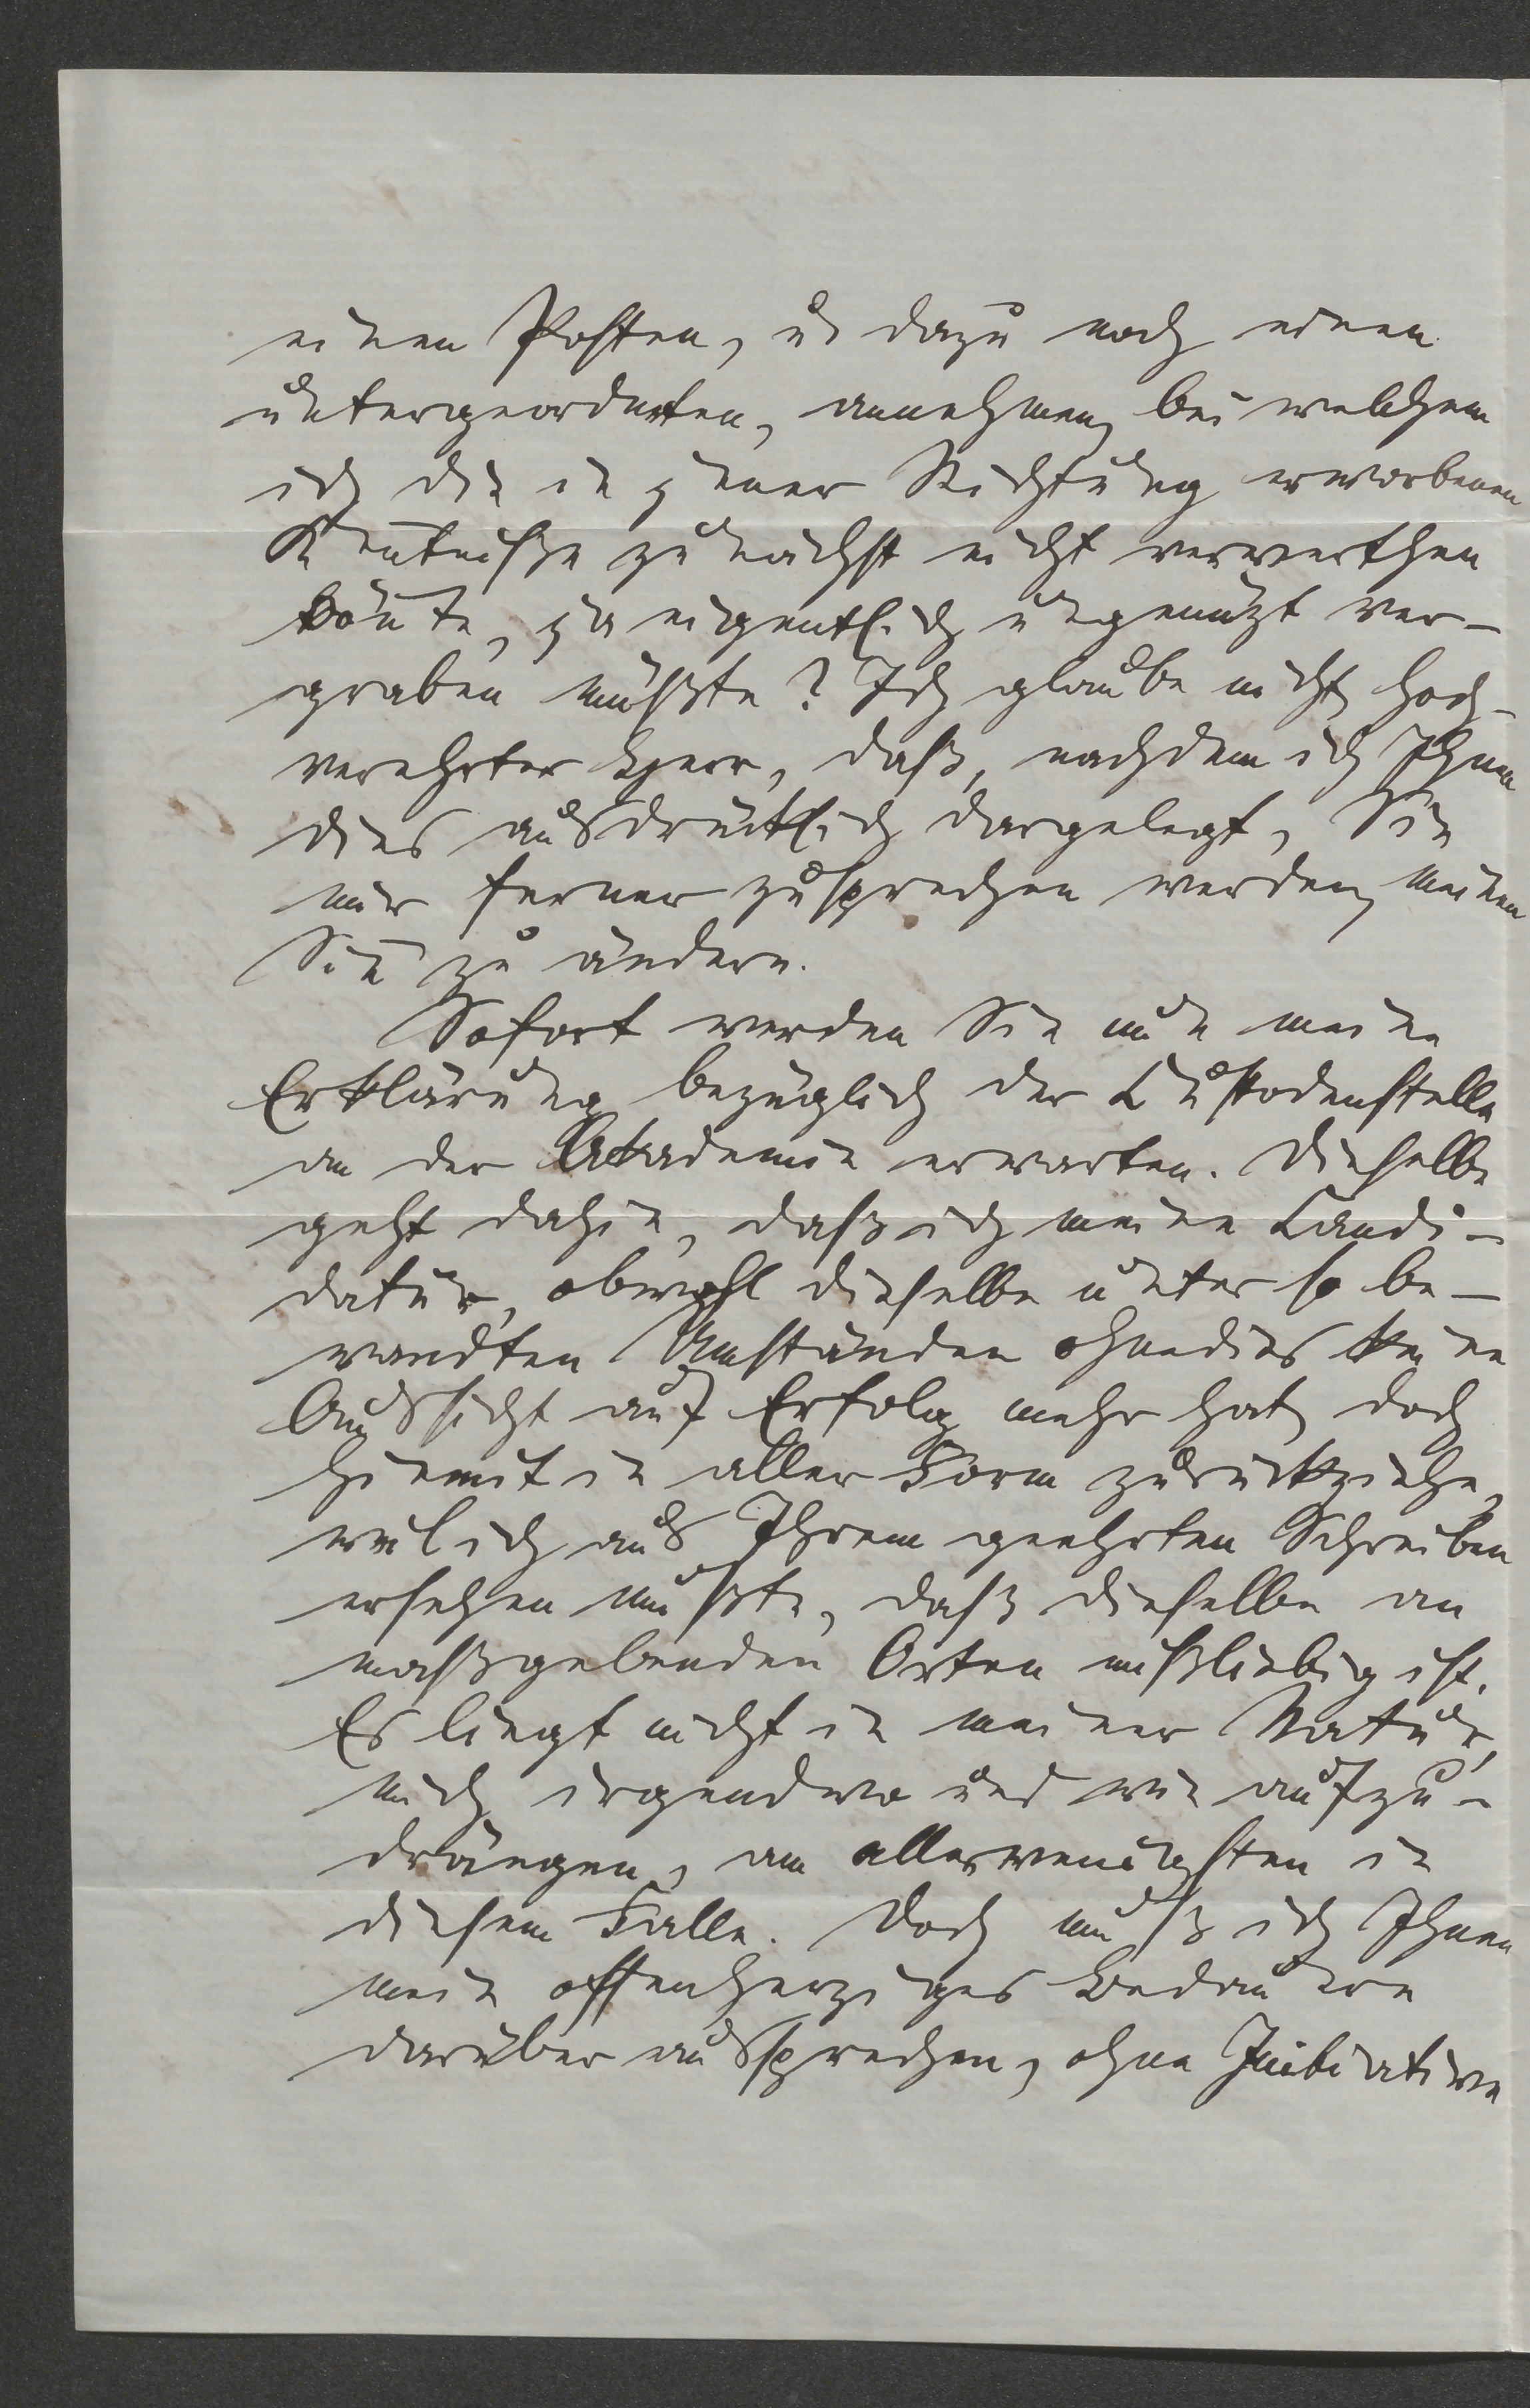 einen Posten, u dazu noch einen
untergeordneten, annehmen, bei welchem
ich die in jener Richtung erworbenen
Kentniße zunächst nicht verwerthen
könte, ja eigentlich ungenüzt ver-
graben müßte? Ich glaube nicht, hoch-
verehrter Herr, daß, nachdem ich Ihnen
dies ausdrücklich dargelegt, Sie
mir ferner zusprechen werden, meinen
Sin̄ zu ändern.
Sofort werden Sie nun meine
Erklärung bezüglich der Custodenstelle
an der Akademie erwarten. Dieselbe
geht dahin, daß ich meine Candi-
datur, obwohl dieselbe unter so be-
wandten Umständen ohnedies keine
Aussicht auf Erfolg mehr hat, doch
hiemit in aller Form zurückziehe,
weil ich aus Ihrem geehrten Schreiben
ersehen mußte, daß dieselbe an
maßgebenden Orten mißliebig ist.
Es liegt nicht in meiner Natur,
mich irgendwo und wie aufzu-
drängen, am allerwenigsten in
diesem Falle. Doch muß ich Ihnen
mein offenherziges Bedauern
darüber aussprechen, ohne Initiative